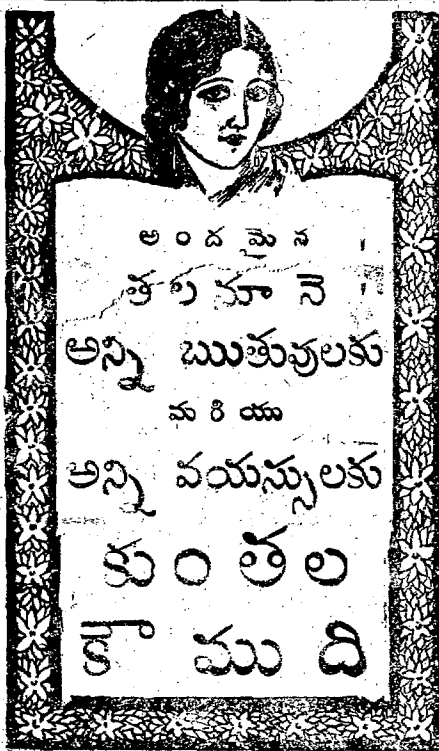 అందమైన !
తలనూనె !!
అన్ని ఋతువులకు
మరియు
అన్ని వయస్సులకు
కుంతల
కౌముది